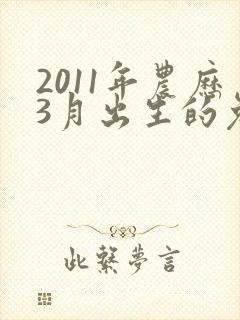 2011年農曆
3月出生的
此繫夢言